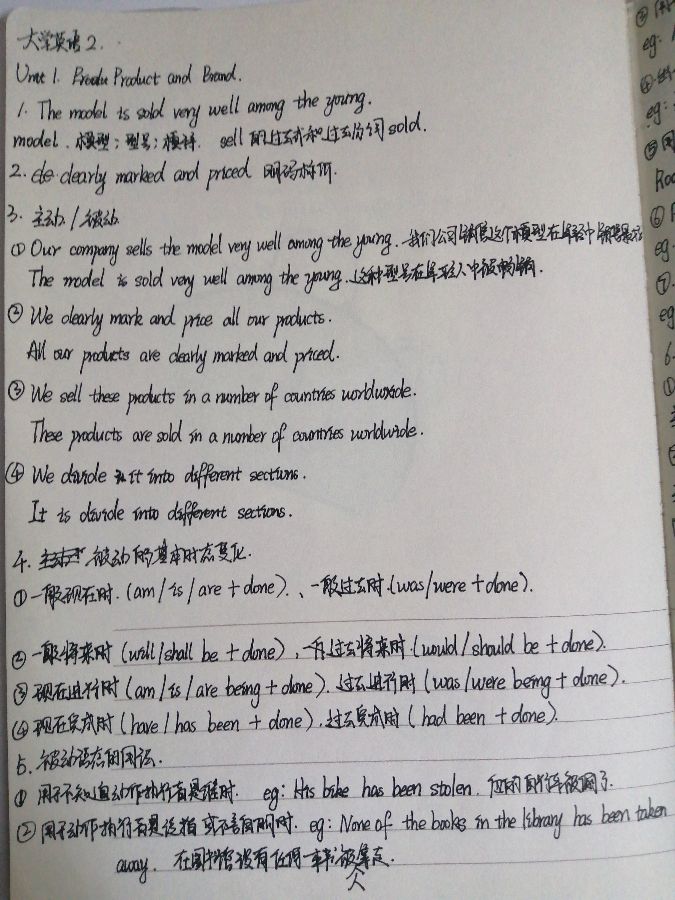 大学英语2.
Unit 1. Product and Brand.
1. The model is sold very well among the young.
model. 模型；型号；模样. sell 的过去式和过去分词 sold.
2. clearly marked and priced 明码标价.
3. 主动/被动
① Our company sells the model very well among the young. 我们公司销售这个模型在年轻中销售
The model is sold very well among the young. 这种型号在年轻人中很畅销.
② We clearly mark and price all our products.
All our products are clearly marked and priced.
③ We sell these products in a number of countries worldwide.
These products are sold in a number of countries worldwide.
④ We divide it into different sections.
It is divide into different sections.
4. 被动的基本时态变化.
① 一般现在时. (am/is/are + done). 、一般过去时. (was/were + done).
② 一般将来时 (will/shall be + done) , 一般过去将来时. (would/should be + done).
③ 现在进行时 (am/is/are being + done). 过去进行时 (was/were being + done).
④ 现在完成时 (have/has been + done). 过去完成时 (had been + done).
5. 被动语态的用法.
① 用于不知道动作执行者是谁时. eg: His bike has been stolen. 他的自行车被偷了.
② 用于动作执行者是泛指或不言自明时. eg: None of the books in the library has been taken
away. 在图书馆没有任何一本书被拿走.
人
② 用
eg:
④
eg:
⑤
⑥
eg
⑦
eg
6.
①